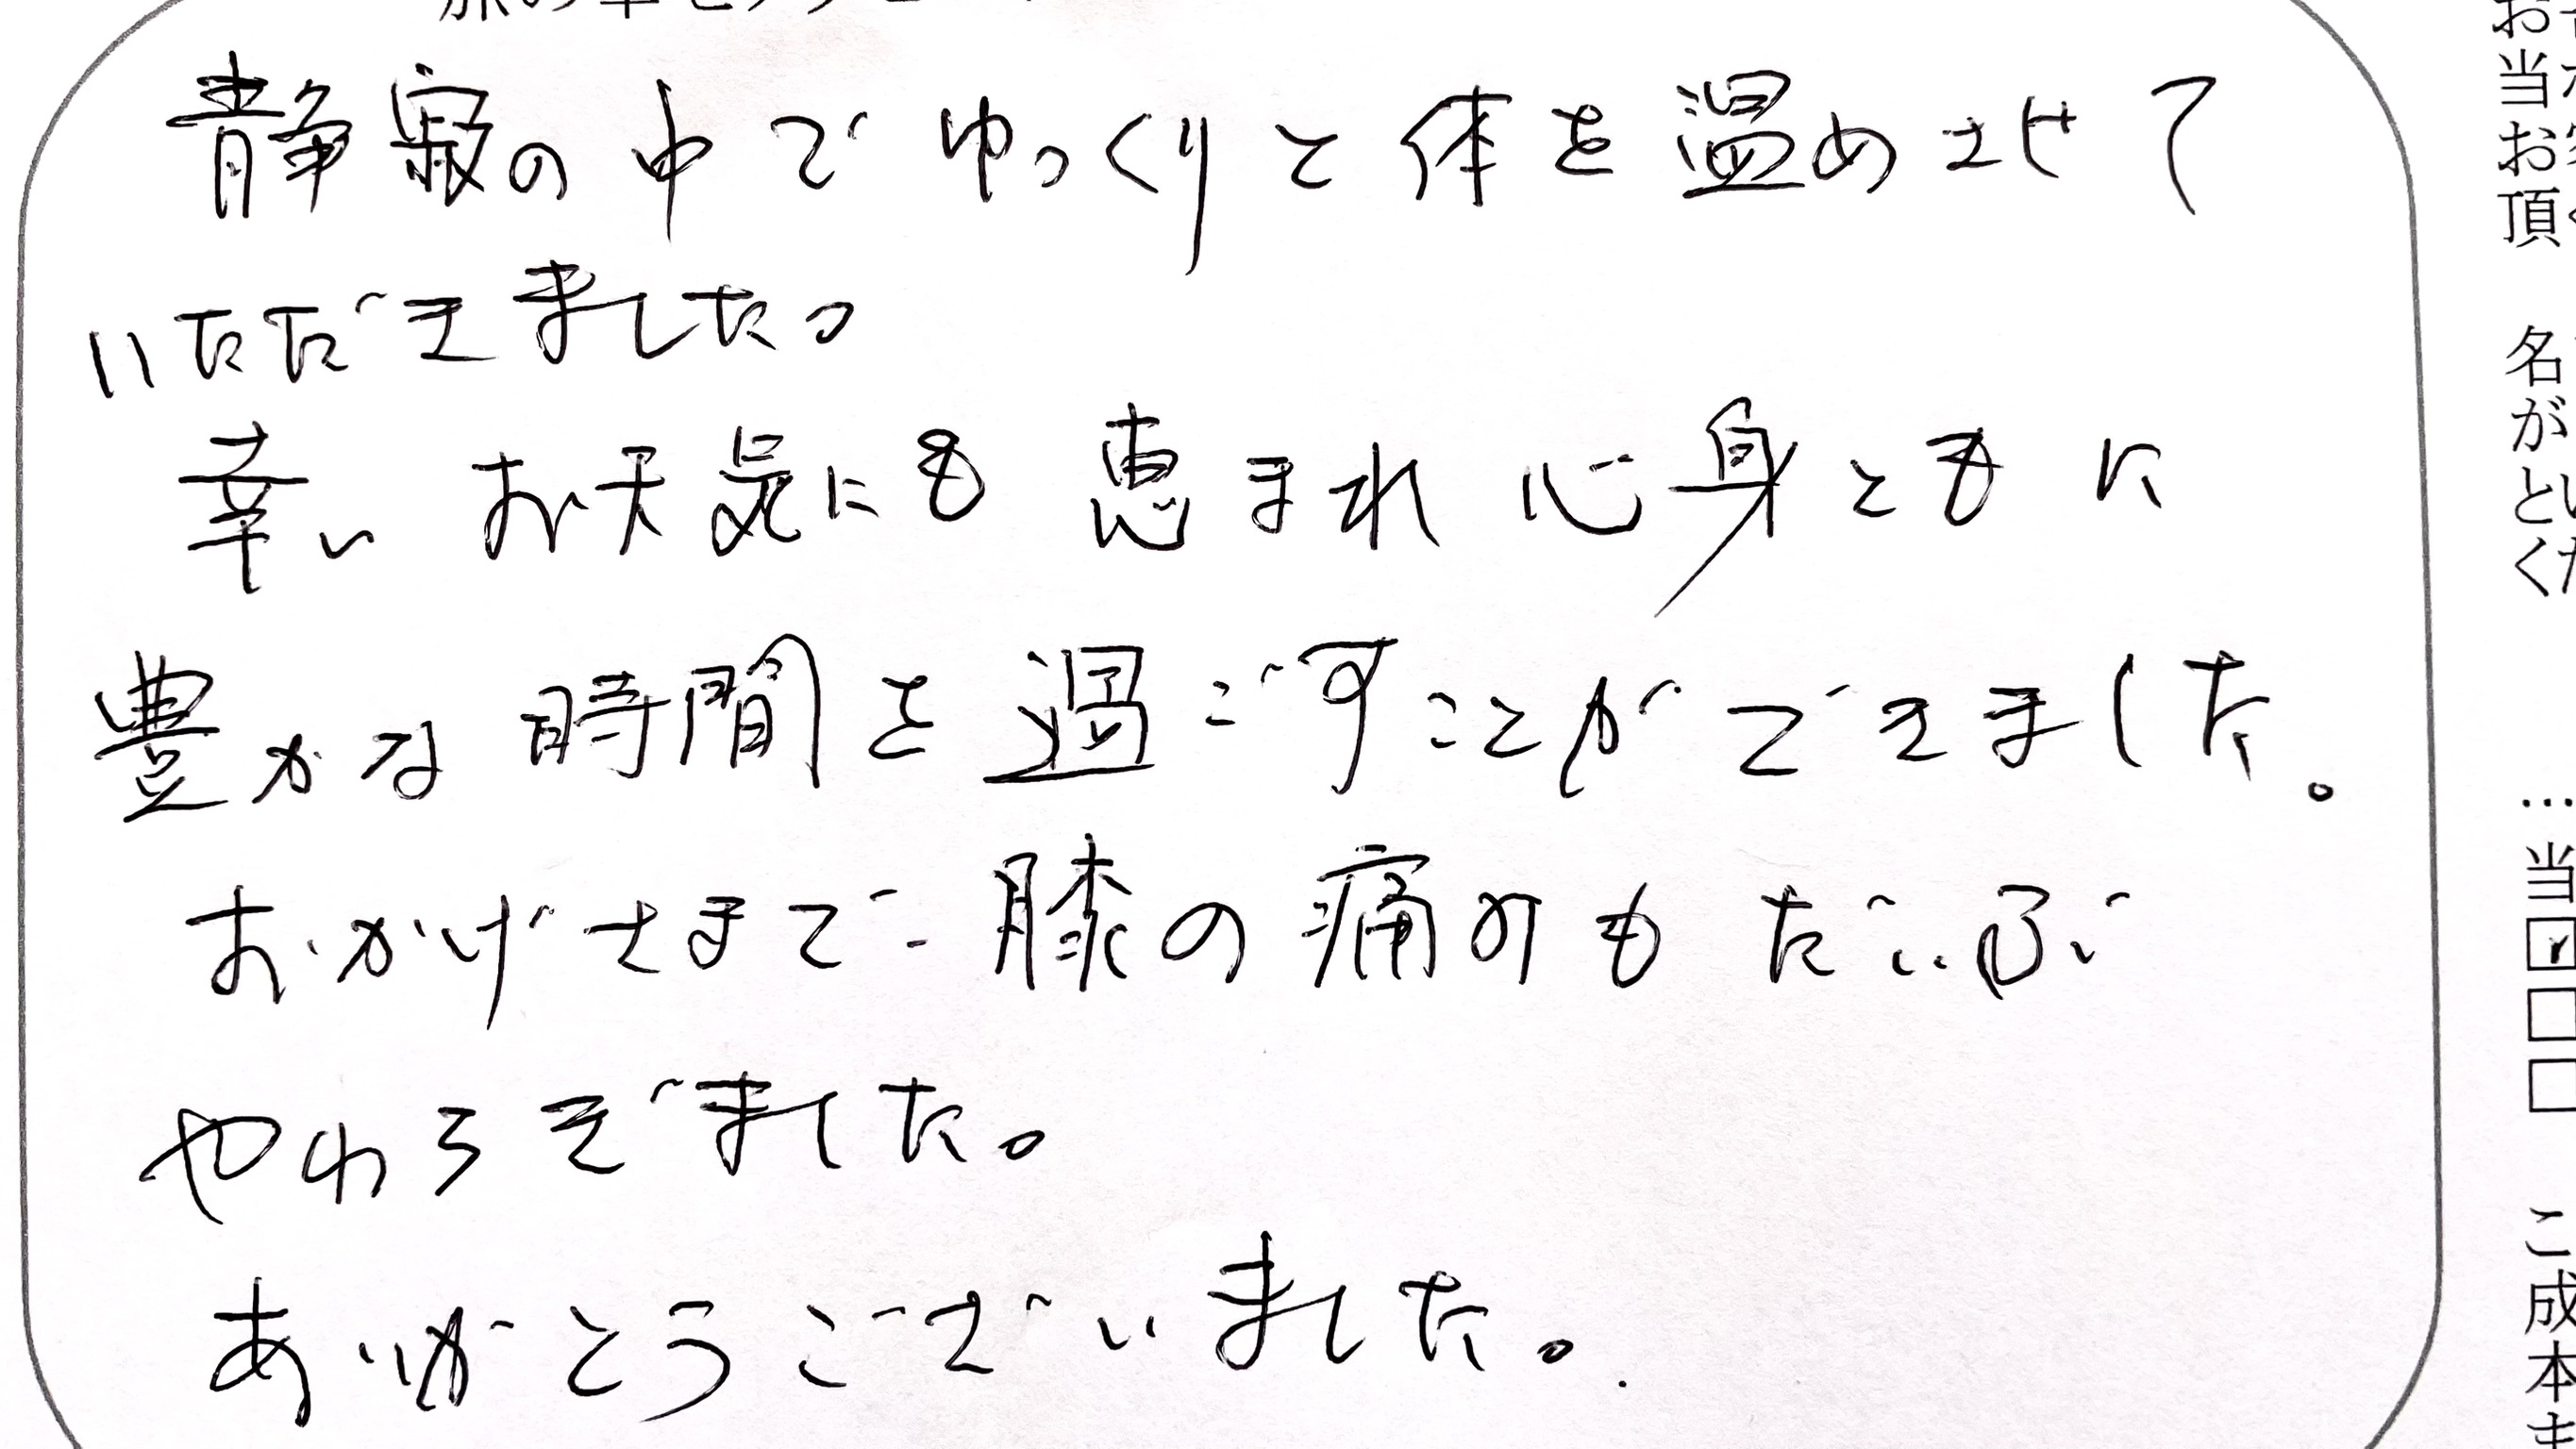 静寂の中でゆっくりと体を温めさせて
いただきました。
幸い お天気にも 恵まれ 心身ともに
豊かな 時間を 過ごすことができました。
おかげさまで 膝の痛みも だいぶ
やわらぎました。
ありがとうございました。
お
当
お
頂
名
が
とい
く
…
当
こ
成
本
ま